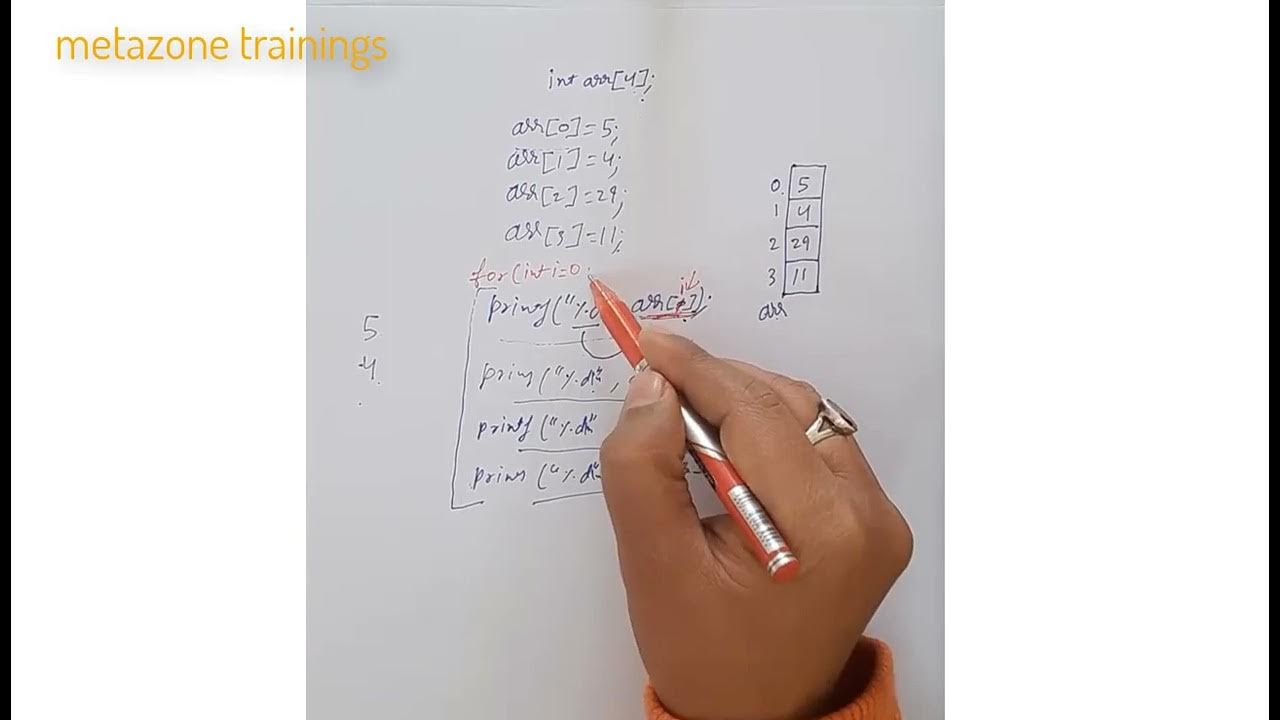 metazone trainings
int arr[4];
arr[0]=5;
arr[1]=4;
arr[2]=29;
arr[3]=11;
for(int i=0;
i
printf("%d arr[ ]);
printf("%d\n",
printf("%d\n"
printf("%d\n"
5
4
0 5
1 4
2 29
3 11
arr